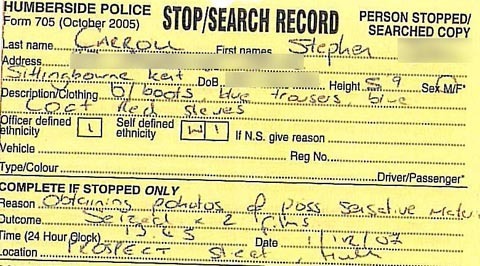 HUMBERSIDE POLICE
Form 705 (October 2005)
STOP/SEARCH RECORD
PERSON STOPPED/
SEARCHED COPY
Last name CARROLL First names Stephen
Address
Sittingbourne Kent DoB Height 5 9 Sex M/F*
Description/Clothing b/boots, blue trousers, blue
Coat Red Sleves
Officer defined ethnicity 1 Self defined ethnicity W 1 If N.S. give reason
Vehicle Reg No.
Type/Colour Driver/Passenger*
COMPLETE IF STOPPED ONLY
Reason Obtaining pohotos of poss sensative
Outcome Seized x 2 films
Time (24 Hour Clock) Date 1/12/07
Location PROSPECT Street, Hull